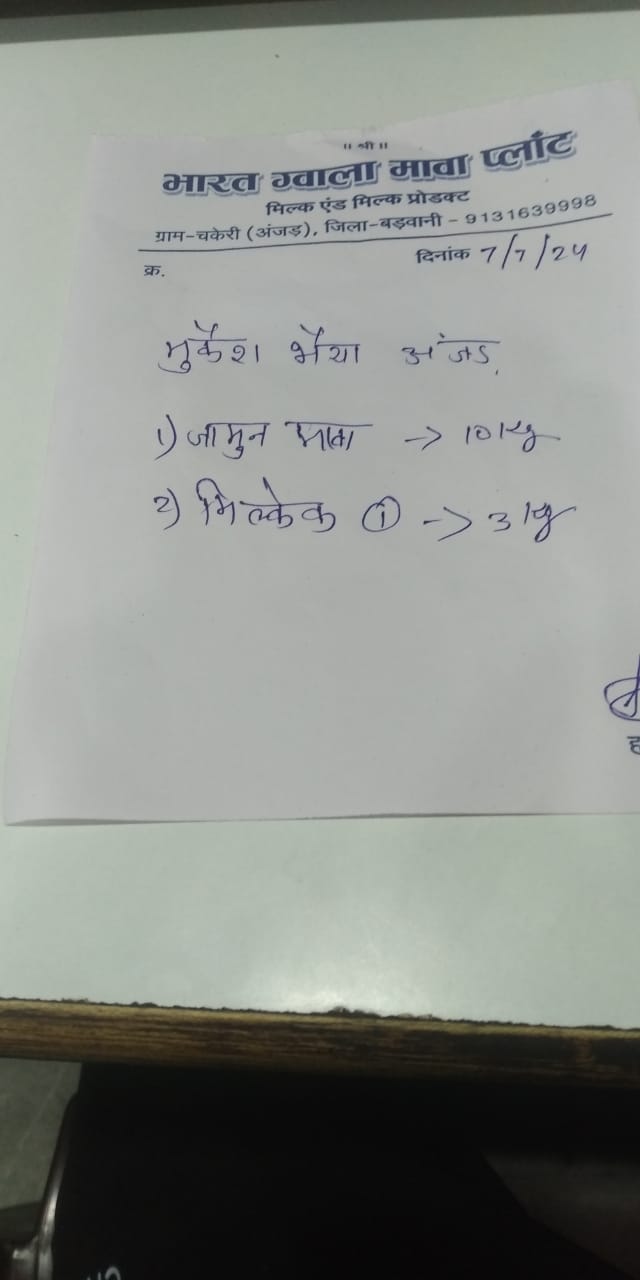 ॥ श्री ॥
भारत ग्वाला मावा प्लांट
मिल्क एंड मिल्क प्रोडक्ट
ग्राम-चकेरी (अंजड़), जिला-बड़वानी - 9131639998
क्र. दिनांक 7/7/24
मुकेश भैया अंजड
1) जामुन मावा -> 10 kg
2) मिल्केक ① -> 3 kg
ह